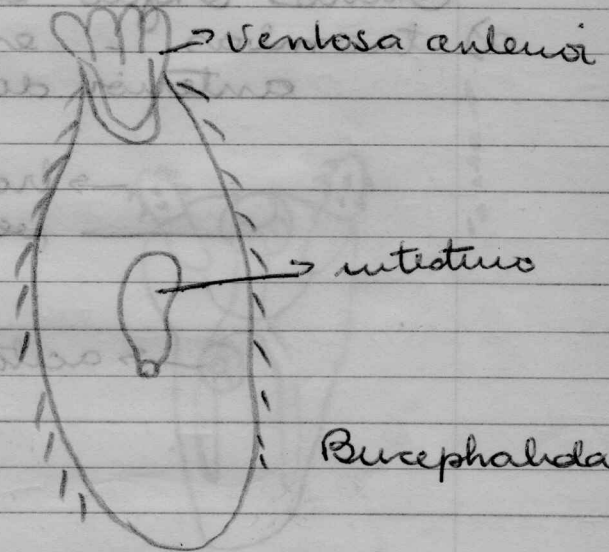 ventosa anterior
intestino
Bucephalida